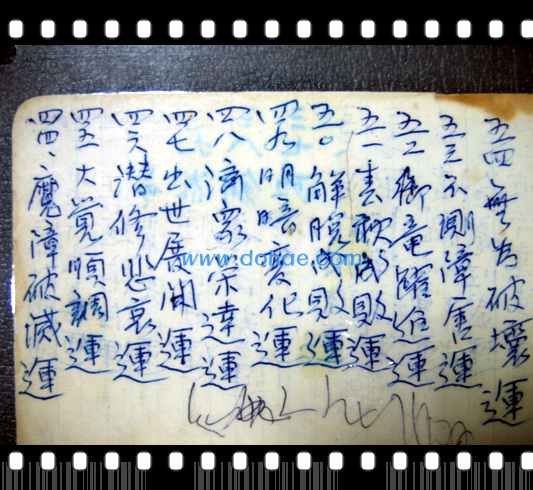 四四、魔障破滅運
四五大覚順調運
四六潜修悲哀運
四七出世展開運
四八済衆栄達運
四九明暗变化運
五〇解脱成敗運
五一春秋成敗運
五二御竜躍進運
五三不測障害運
五四無告破壞運
www.dorjae.com